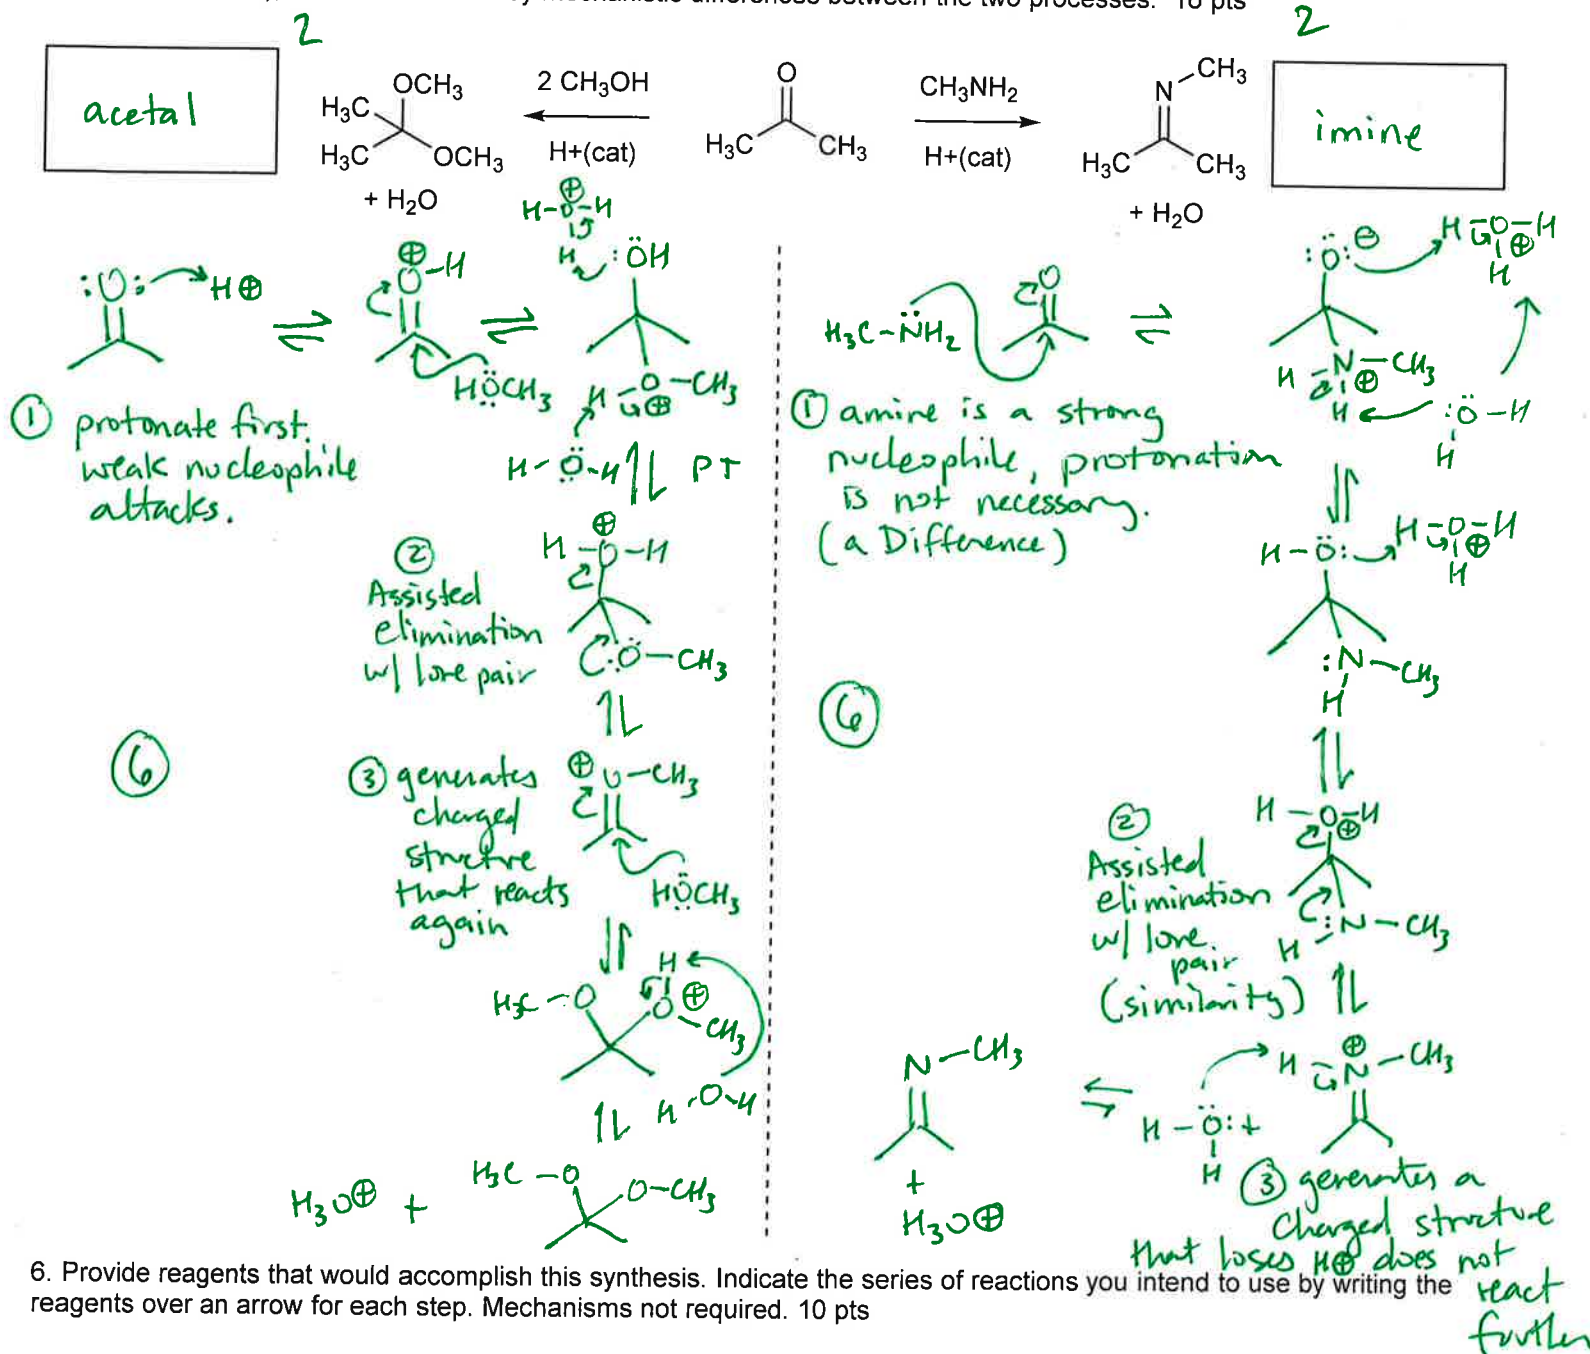 y mechanistic differences between the two processes. 10 pts
2
2
acetal
H₃C
H₃C
OCH₃
OCH₃
+ H₂O
2 CH₃OH
H+(cat)
O
H₃C
CH₃
CH₃NH₂
H+(cat)
N
CH₃
H₃C
CH₃
+ H₂O
imine
:O: H⊕
⊕
O-H
HÖCH₃
⊕
H-O-H
H
:ÖH
H O-CH₃
⊕
H-Ö-H
PT
① protonate first.
weak nucleophile
attacks.
②
Assisted
elimination
w/ lone pair
⊕
H-O-H
:Ö-CH₃
⑥
③ generates
charged
structure
that reacts
again
⊕ O-CH₃
HÖCH₃
H₃C-O
H
O ⊕
CH₃
H-O-H
H₃O⊕ +
H₃C-O
O-CH₃
H₃C-N̈H₂
O
:Ö:⊖
H-O-H
⊕
H
H-N-CH₃
⊕
H
:Ö-H
H
① amine is a strong
nucleophile, protonation
is not necessary.
(a Difference)
H-Ö:
H-O-H
⊕
H
:N-CH₃
H
⑥
H-O-H
⊕
②
Assisted
elimination
w/ lone
pair
(similarity)
H :N-CH₃
N-CH₃
+
H₃O⊕
H-Ö: +
H
⊕
H-N-CH₃
③ generates a
charged structure
that loses H⊕ does not
react
further
6. Provide reagents that would accomplish this synthesis. Indicate the series of reactions you intend to use by writing the
reagents over an arrow for each step. Mechanisms not required. 10 pts